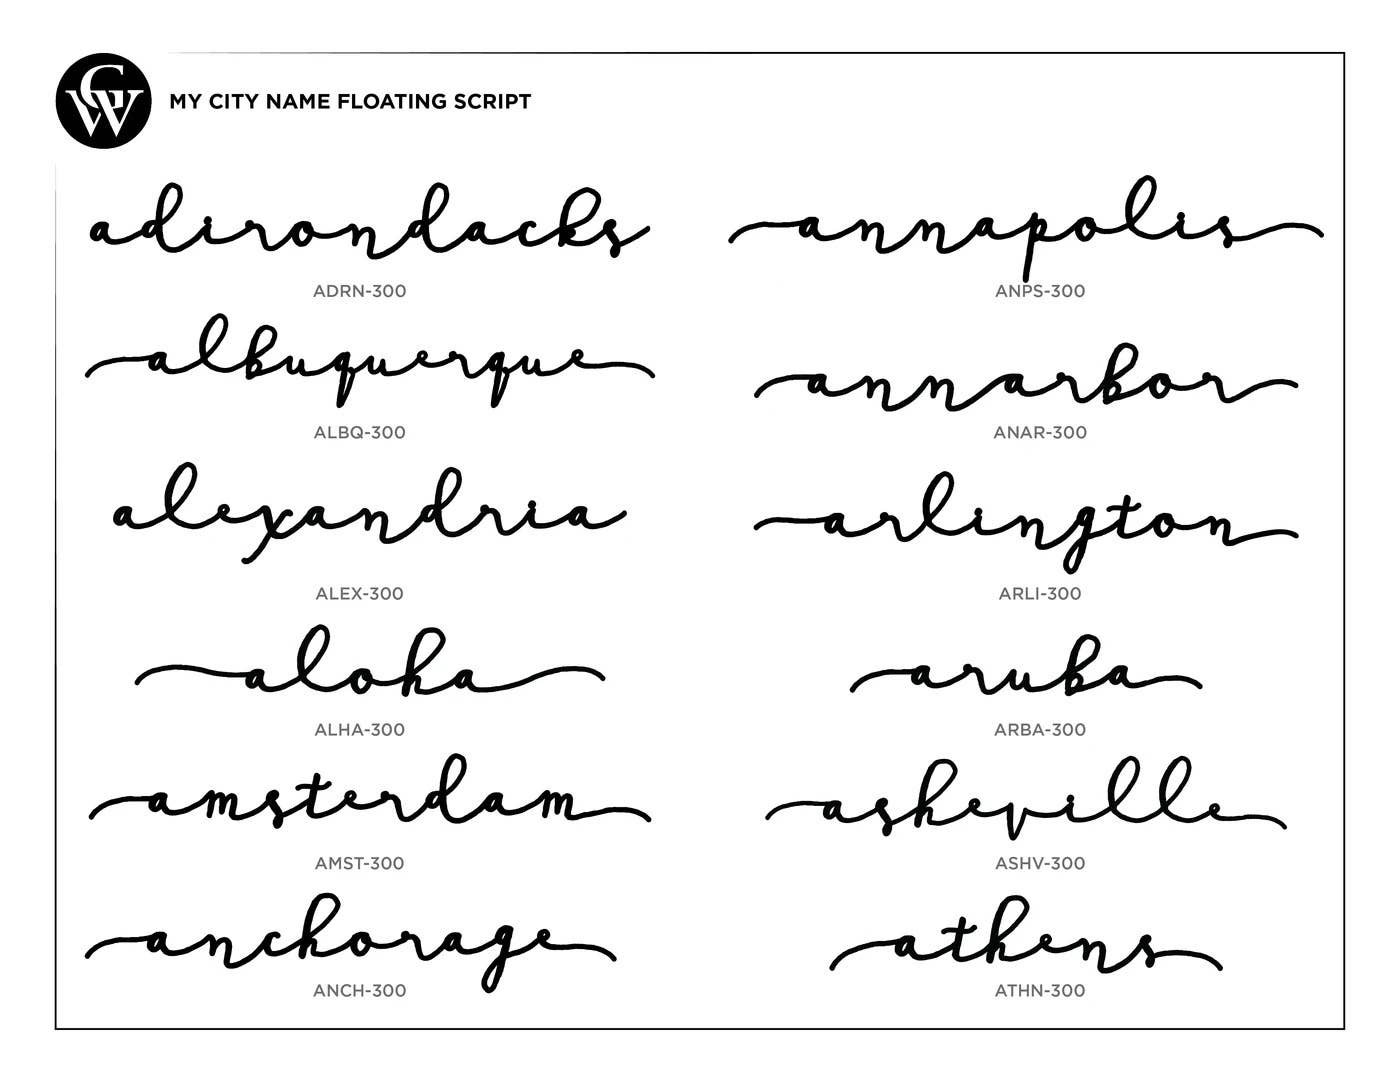 CW
MY CITY NAME FLOATING SCRIPT
adirondacks
ADRN-300
albuquerque
ALBQ-300
alexandria
ALEX-300
aloha
ALHA-300
amsterdam
AMST-300
anchorage
ANCH-300
annapolis
ANPS-300
annarbor
ANAR-300
arlington
ARLI-300
aruba
ARBA-300
asheville
ASHV-300
athens
ATHN-300